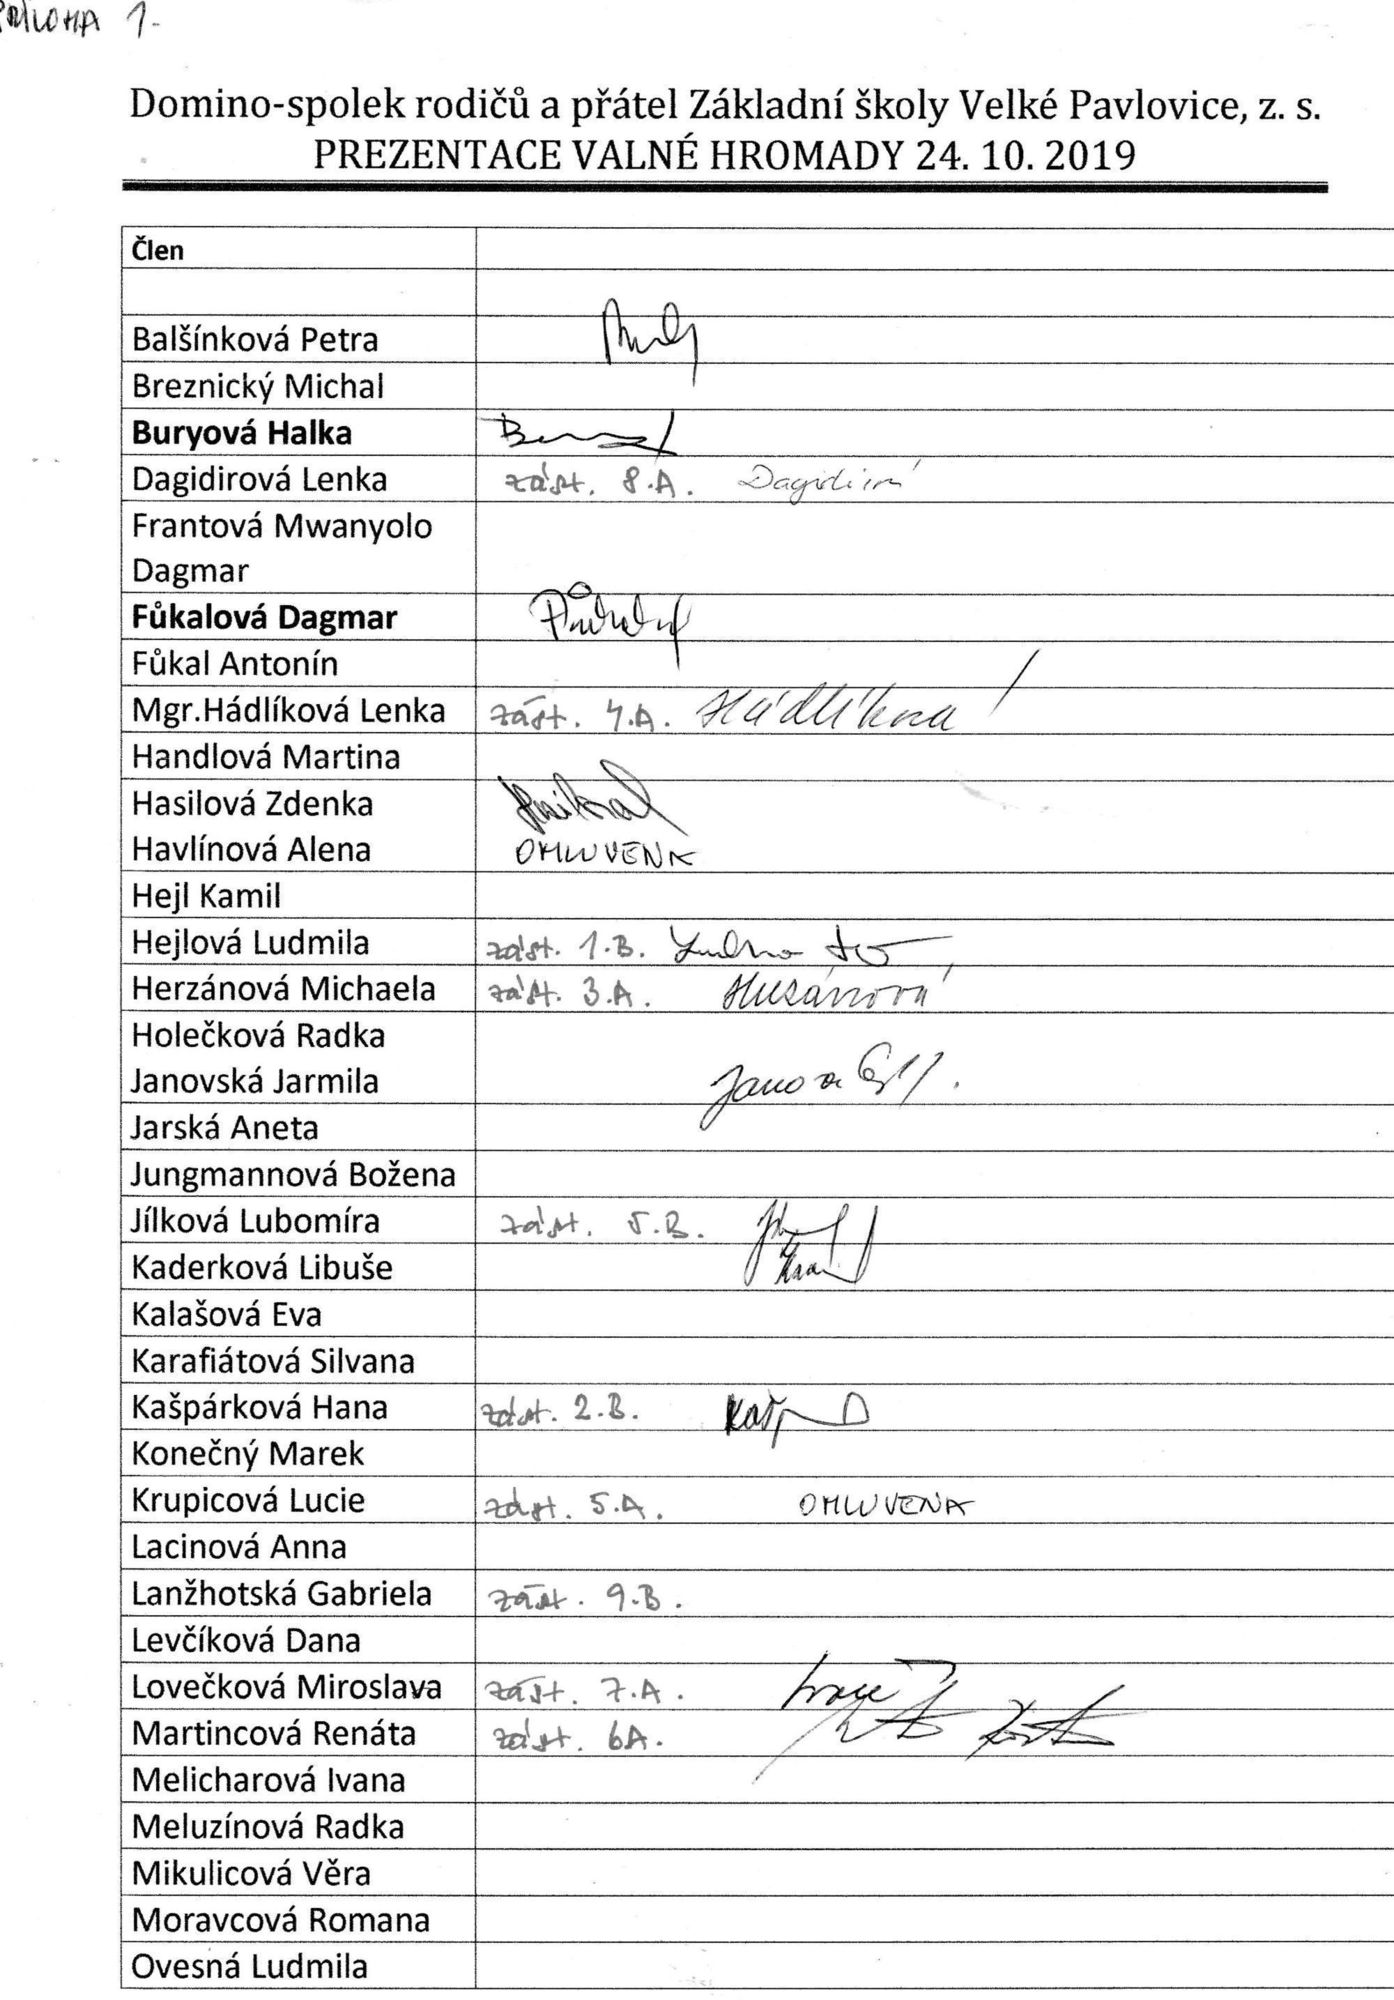 PŘÍLOHA 1.
Domino-spolek rodičů a přátel Základní školy Velké Pavlovice, z. s.
PREZENTACE VALNÉ HROMADY 24. 10. 2019
Člen
Balšínková Petra
Breznický Michal
Buryová Halka
Dagidirová Lenka zást. 8.A. Dagidirová
Frantová Mwanyolo
Dagmar
Fůkalová Dagmar
Fůkal Antonín
Mgr.Hádlíková Lenka zást. 4.A. Hádlíková
Handlová Martina
Hasilová Zdenka
Havlínová Alena OMLUVENA
Hejl Kamil
Hejlová Ludmila zást. 1.B.
Herzánová Michaela zást. 3.A.
Holečková Radka
Janovská Jarmila
Jarská Aneta
Jungmannová Božena
Jílková Lubomíra zást. 5.B.
Kaderková Libuše
Kalašová Eva
Karafiátová Silvana
Kašpárková Hana zást. 2.B.
Konečný Marek
Krupicová Lucie zást. 5.A. OMLUVENA
Lacinová Anna
Lanžhotská Gabriela zást. 9.B.
Levčíková Dana
Lovečková Miroslava zást. 7.A.
Martincová Renáta zást. 6A.
Melicharová Ivana
Meluzínová Radka
Mikulicová Věra
Moravcová Romana
Ovesná Ludmila